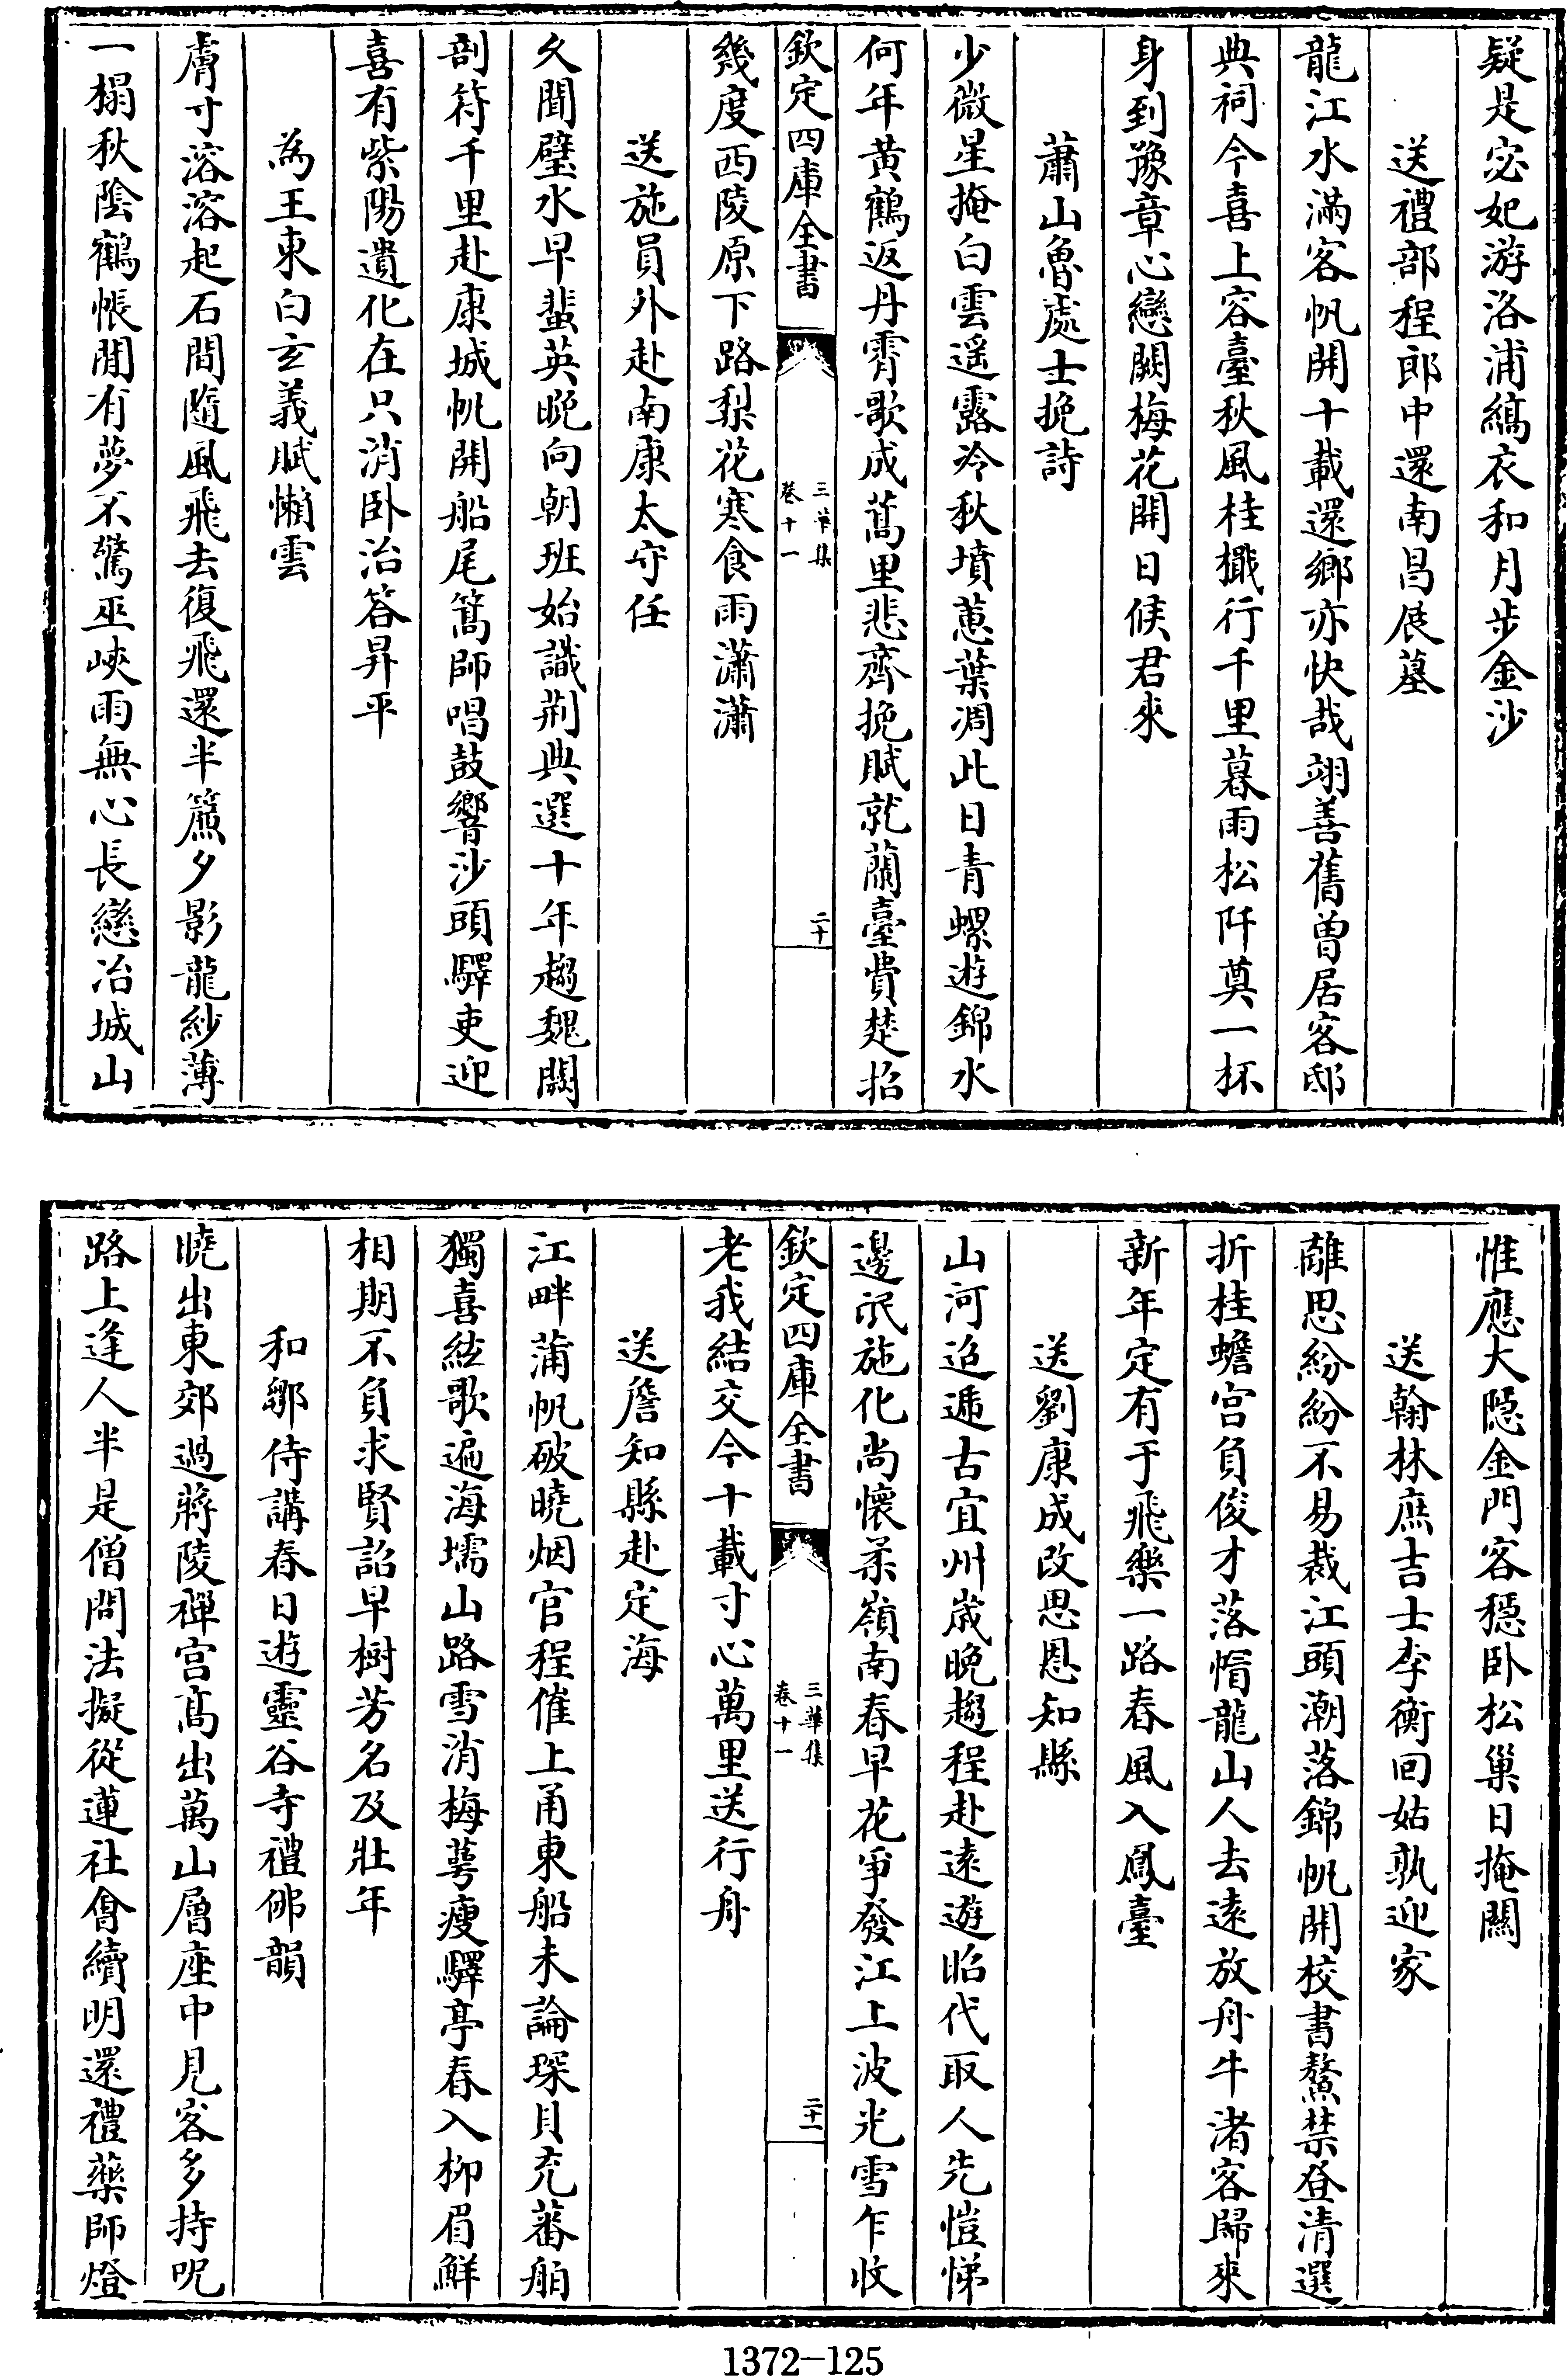 疑是宓妃游洛浦縞衣和月步金沙
送禮部程郎中還南昌展墓
龍江水滿客帆開十載還鄉亦快哉翊善舊曽居客邸
典祠今喜上容臺秋風桂檝行千里暮雨松阡奠一杯
身到豫章心戀闕梅花開日候君來
蕭山魯處士挽詩
少微星掩白雲遥露冷秋墳蕙葉凋此日青螺遊錦水
何年黄鶴返丹霄歌成蒿里悲齊挽賦就蘭臺費楚招
欽定四庫全書
三華集
卷十一
二十
幾度西陵原下路梨花寒食雨瀟瀟
送施員外赴南康太守任
久聞璧水早蜚英晚向朝班始識荆典選十年趨魏闕
剖符千里赴康城帆開船尾篙師唱鼓響沙頭驛吏迎
喜有紫陽遺化在只消卧治答昇平
為王東白玄義賦懶雲
膚寸溶溶起石間隨風飛去復飛還半簾夕影龍紗薄
一榻秋陰鶴帳閒有夢不驚巫峽雨無心長戀冶城山
惟應大隠金門客穏卧松巢日掩關
送翰林庶吉士李衡回姑孰迎家
離思紛紛不易裁江頭潮落錦帆開校書鰲禁登清選
折桂蟾宫負俊才落帽龍山人去遠放舟牛渚客歸來
新年定有于飛樂一路春風入鳳臺
送劉康成改思恩知縣
山河迢遞古宜州嵗晚趨程赴遠遊昭代取人先愷悌
邊氓施化尚懷柔嶺南春早花爭發江上波光雪乍收
欽定四庫全書
三華集
卷十一
二十一
老我結交今十載寸心萬里送行舟
送詹知縣赴定海
江畔蒲帆破曉烟官程催上甬東船未論琛貝充蕃舶
獨喜絃歌遍海壖山路雪消梅萼瘦驛亭春入柳眉鮮
相期不負求賢詔早樹芳名及壯年
和鄒侍講春日遊靈谷寺禮佛韻
曉出東郊過蔣陵禪宫髙出萬山層座中見客多持呪
路上逢人半是僧問法擬從蓮社會續明還禮藥師燈
1372-125